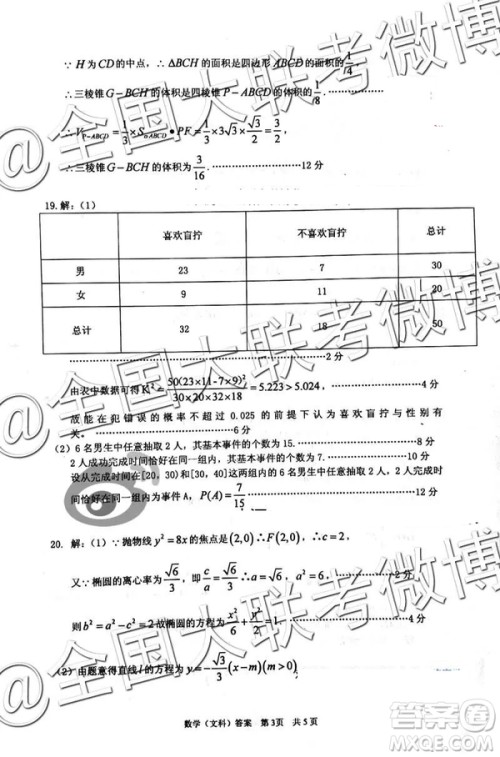 ∵ H 为 CD 的中点，∴ ΔBCH 的面积是四边形 ABCD 的面积的 1/4，
∴三棱锥 G－BCH 的体积是四棱锥 P－ABCD 的体积的 1/8
∴ V_{P-ABCD} = 1/3 × S_{ABCD} • PF = 1/3 × 3√3 × √3/2 = 3/2，
∴三棱锥 G－BCH 的体积为 3/16 ……………12 分
19.解：（1）
喜欢盲拧 不喜欢盲拧 总计
男 23 7 30
女 9 11 20
总计 32 18 50
……………2 分
由表中数据可得 K² = 50(23×11-7×9)²/30×20×32×18 = 5.223>5.024， ……………4 分
故能在犯错误的概率不超过 0.025 的前提下认为喜欢盲拧与性别有
关。……………6 分
（2）6 名男生中任意抽取 2 人，其基本事件的个数为 15. ……………8 分
2 人成功完成时间恰好在同一组内，其基本事件的个数为 7. ……………10 分
设从完成时间在[20，30）和[30，40］这两组内的 6 名男生中任意抽取 2 人，
恰好在同一组内为事件 A， P(A)= 7/15 ……………12 分
20. 解：（1）∵抛物线 y²=8x 的焦点是 (2,0)∴F(2,0)，∴c=2，
又∵椭圆的离心率为 √6/3，即 c/a = √6/3 ∴a=√6，a²=6，
则 b²=a²-c²=2 故椭圆的方程为 x²/6 + y²/2 = 1.
（2）由题意得直线 l 的方程为 y=-√3/3 (x-m)(m>0)
数学（文科）答案 第 3页 共 5 页
@全国大联考微博
@全国大联考微博
答案圈
MXQE.COM